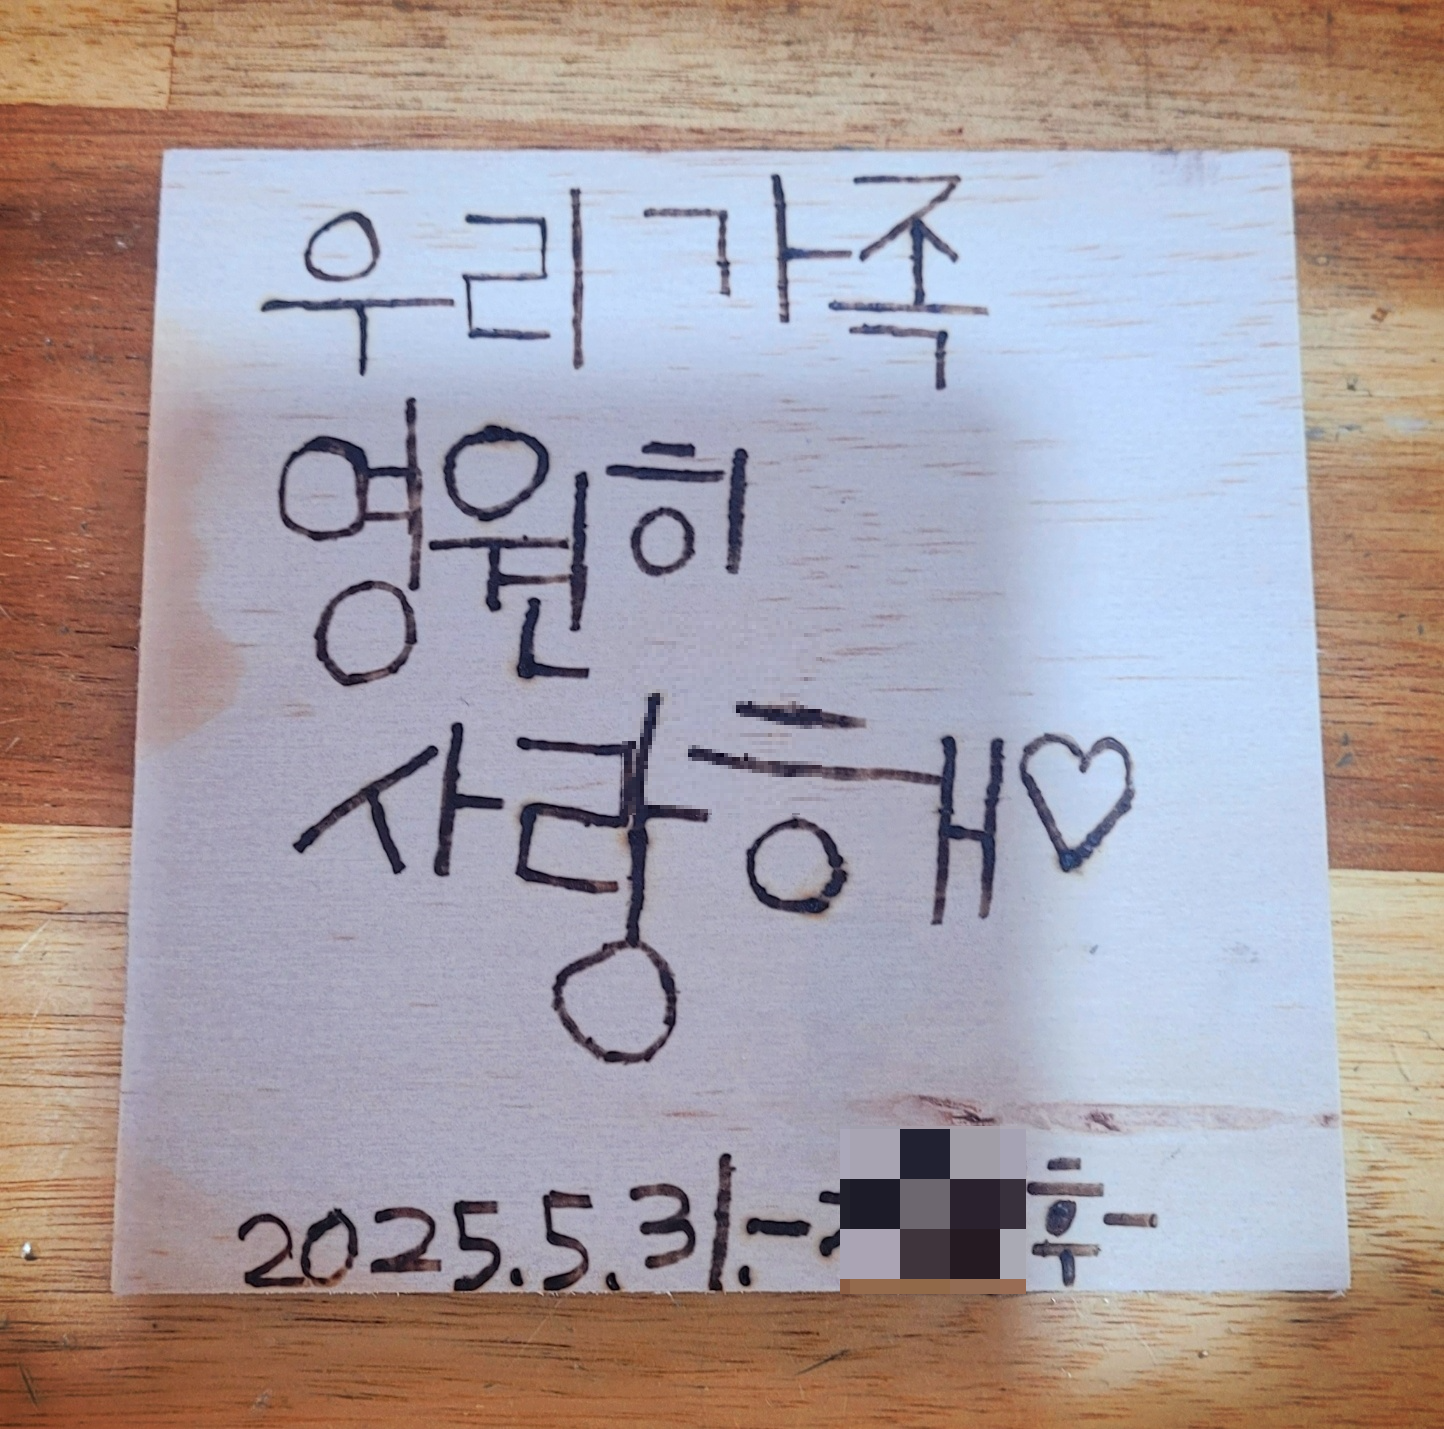 우리 가족
영원히
사랑해♡
2025.5.31.- 후-